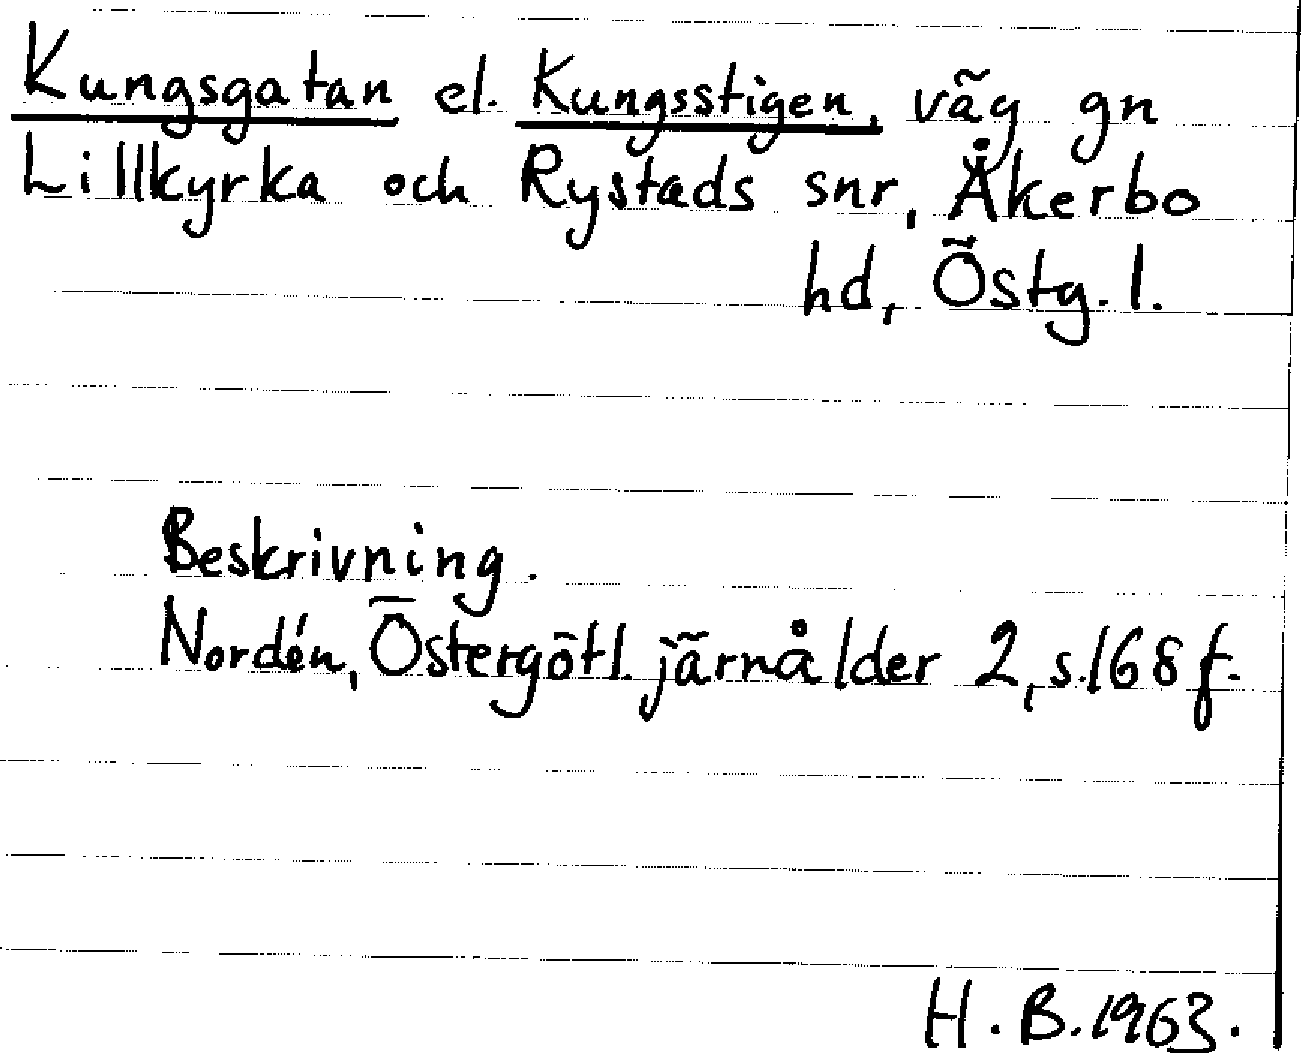 Kungsgatan el. Kungsstigen, väg gn
Lillkyrka och Rystads snr, Åkerbo
hd, Östg. l.
Beskrivning.
Nordén, Östergötl. järnålder 2, s. 168 f.
H. B. 1963.